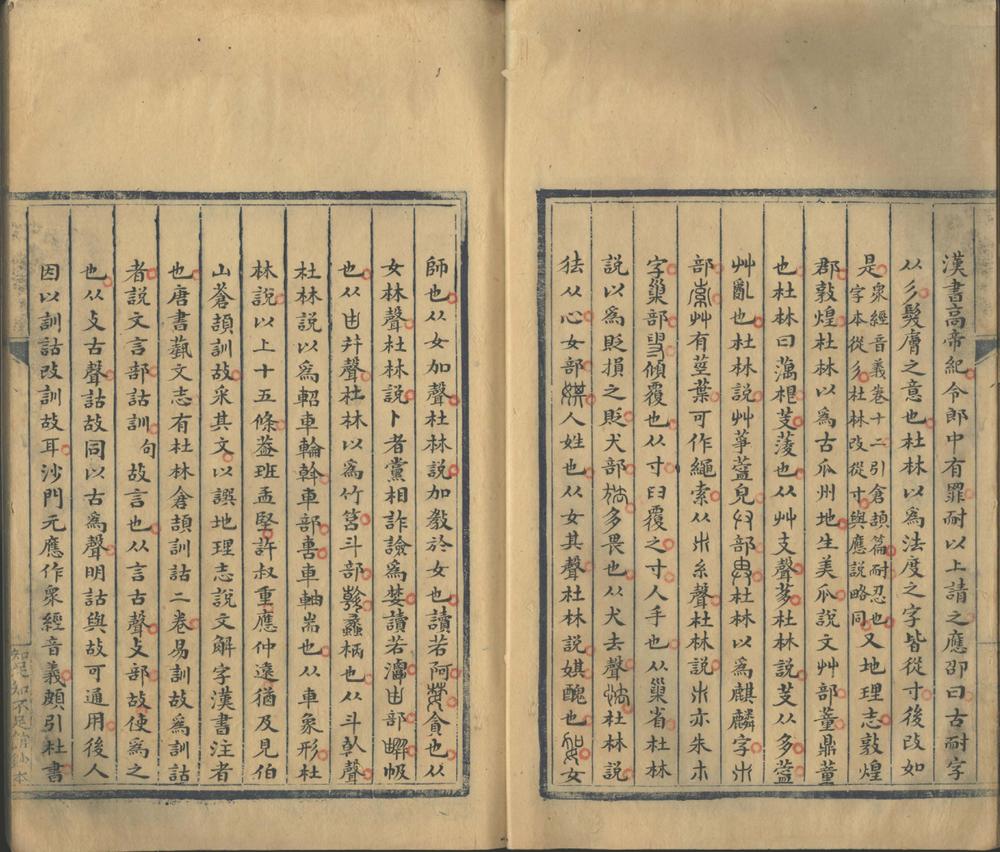 漢書高帝紀令郎中有罪耐以上請之應邵曰古耐字
从彡髮膚之意也杜林以為法度之字皆從寸後改如
是衆經音義卷十二引倉頡篇耐忍也
字本從彡杜林改從寸與應説略同又地理志敦煌
郡敦煌杜林以為古瓜州地生美瓜說文艸部董鼎董
也杜林曰藕根芰蔆也从艸支聲茤杜林説芰从多薴
艸亂也杜林説艸茡薴皃部杜林以為麒麟字
部艸有莖葉可作繩索从糸聲杜林說亦朱木
字巢部傾覆也从寸臼覆之寸人手也从巢省杜林
說以為貶損之貶犬部多畏也从犬去聲杜林說
狯从心女部娸人姓也从女其聲杜林說娸醜也女
師也从女加聲杜林説加教於女也讀若阿婪貪也从
女林聲杜林説卜者黨相詐譣為婪讀若潭部帔
也从甶幷聲杜林以為竹筥斗部蠡柄也从斗倝聲
杜林説以為軺車輪斡車部軎車軸耑也从車象形杜
林説以上十五條葢班孟堅許叔重應仲遠猶及見伯
山蒼頡訓故采其文以譔地理志說文解字漢書注者
也唐書蓺文志有杜林倉頡訓詁二卷易訓故為訓詁
者說文言部詁訓句故言也从言古聲攴部故使為之
也从攴古聲詁故同以古為聲明詁與故可通用後人
因以訓詁改訓故耳沙門元應作衆經音義頗引杜書
知不足